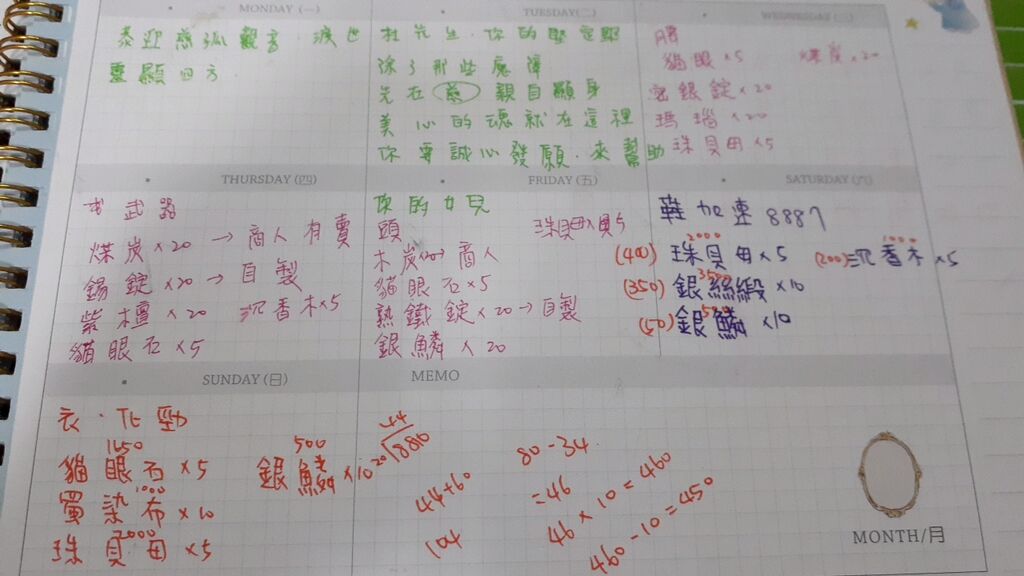 MONDAY (一)
靈顯四方
TUESDAY (二)
杜先生,你的堅定
除了那些魔障
先在 親自顯身
美心的魂就在這裡
你要誠心發願,來幫助
WEDNESDAY (三)
貓眼×5 煤炭×20
銀錠×20
瑪瑙×20
珠貝母×5
THURSDAY (四)
武器
煤炭×20→商人有賣
錫錠×20→自製
紫檀×20 沉香木×5
貓眼石×5
FRIDAY (五)
你的女兒
頭 珠貝母×5
木炭×20→商人
貓眼石×5
熟鐵錠×20→自製
銀鱗×20
SATURDAY (六)
鞋加速8887
2000
(400) 珠貝母×5
1000
(200) 沉香木×5
3500
(350) 銀絲緞×10
500
(50) 銀鱗×10
SUNDAY (日)
衣.
1650
貓眼石×5
500
銀鱗×10
1000
蜀染布×10
2000
珠貝母×5
MEMO
44
20 880
44+60
104
80-34
=46
46×10=460
460-10=450
MONTH/月